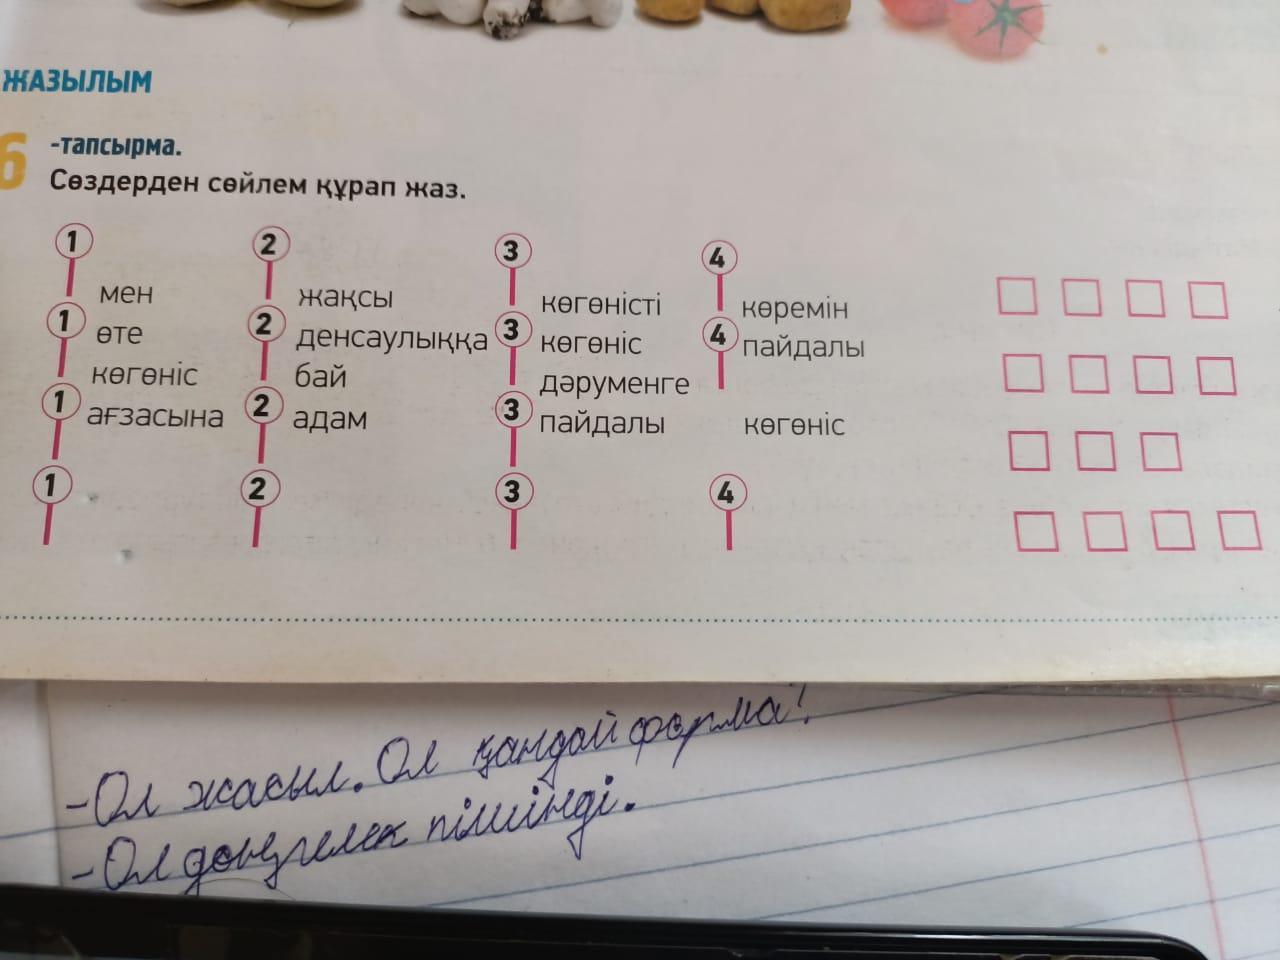 ЖАЗЫЛЫМ
6 -тапсырма.
Сөздерден сөйлем құрап жаз.
1 2 3 4
мен жақсы көгөністі көремін
1 2 3 4
өте денсаулыққа көгөніс пайдалы
көгөніс бай дәруменге
1 2 3
ағзасына адам пайдалы көгөніс
1 2 3 4
-Ол жасыл. Ол қандай форма?
-Ол дөңгелек пішінді.